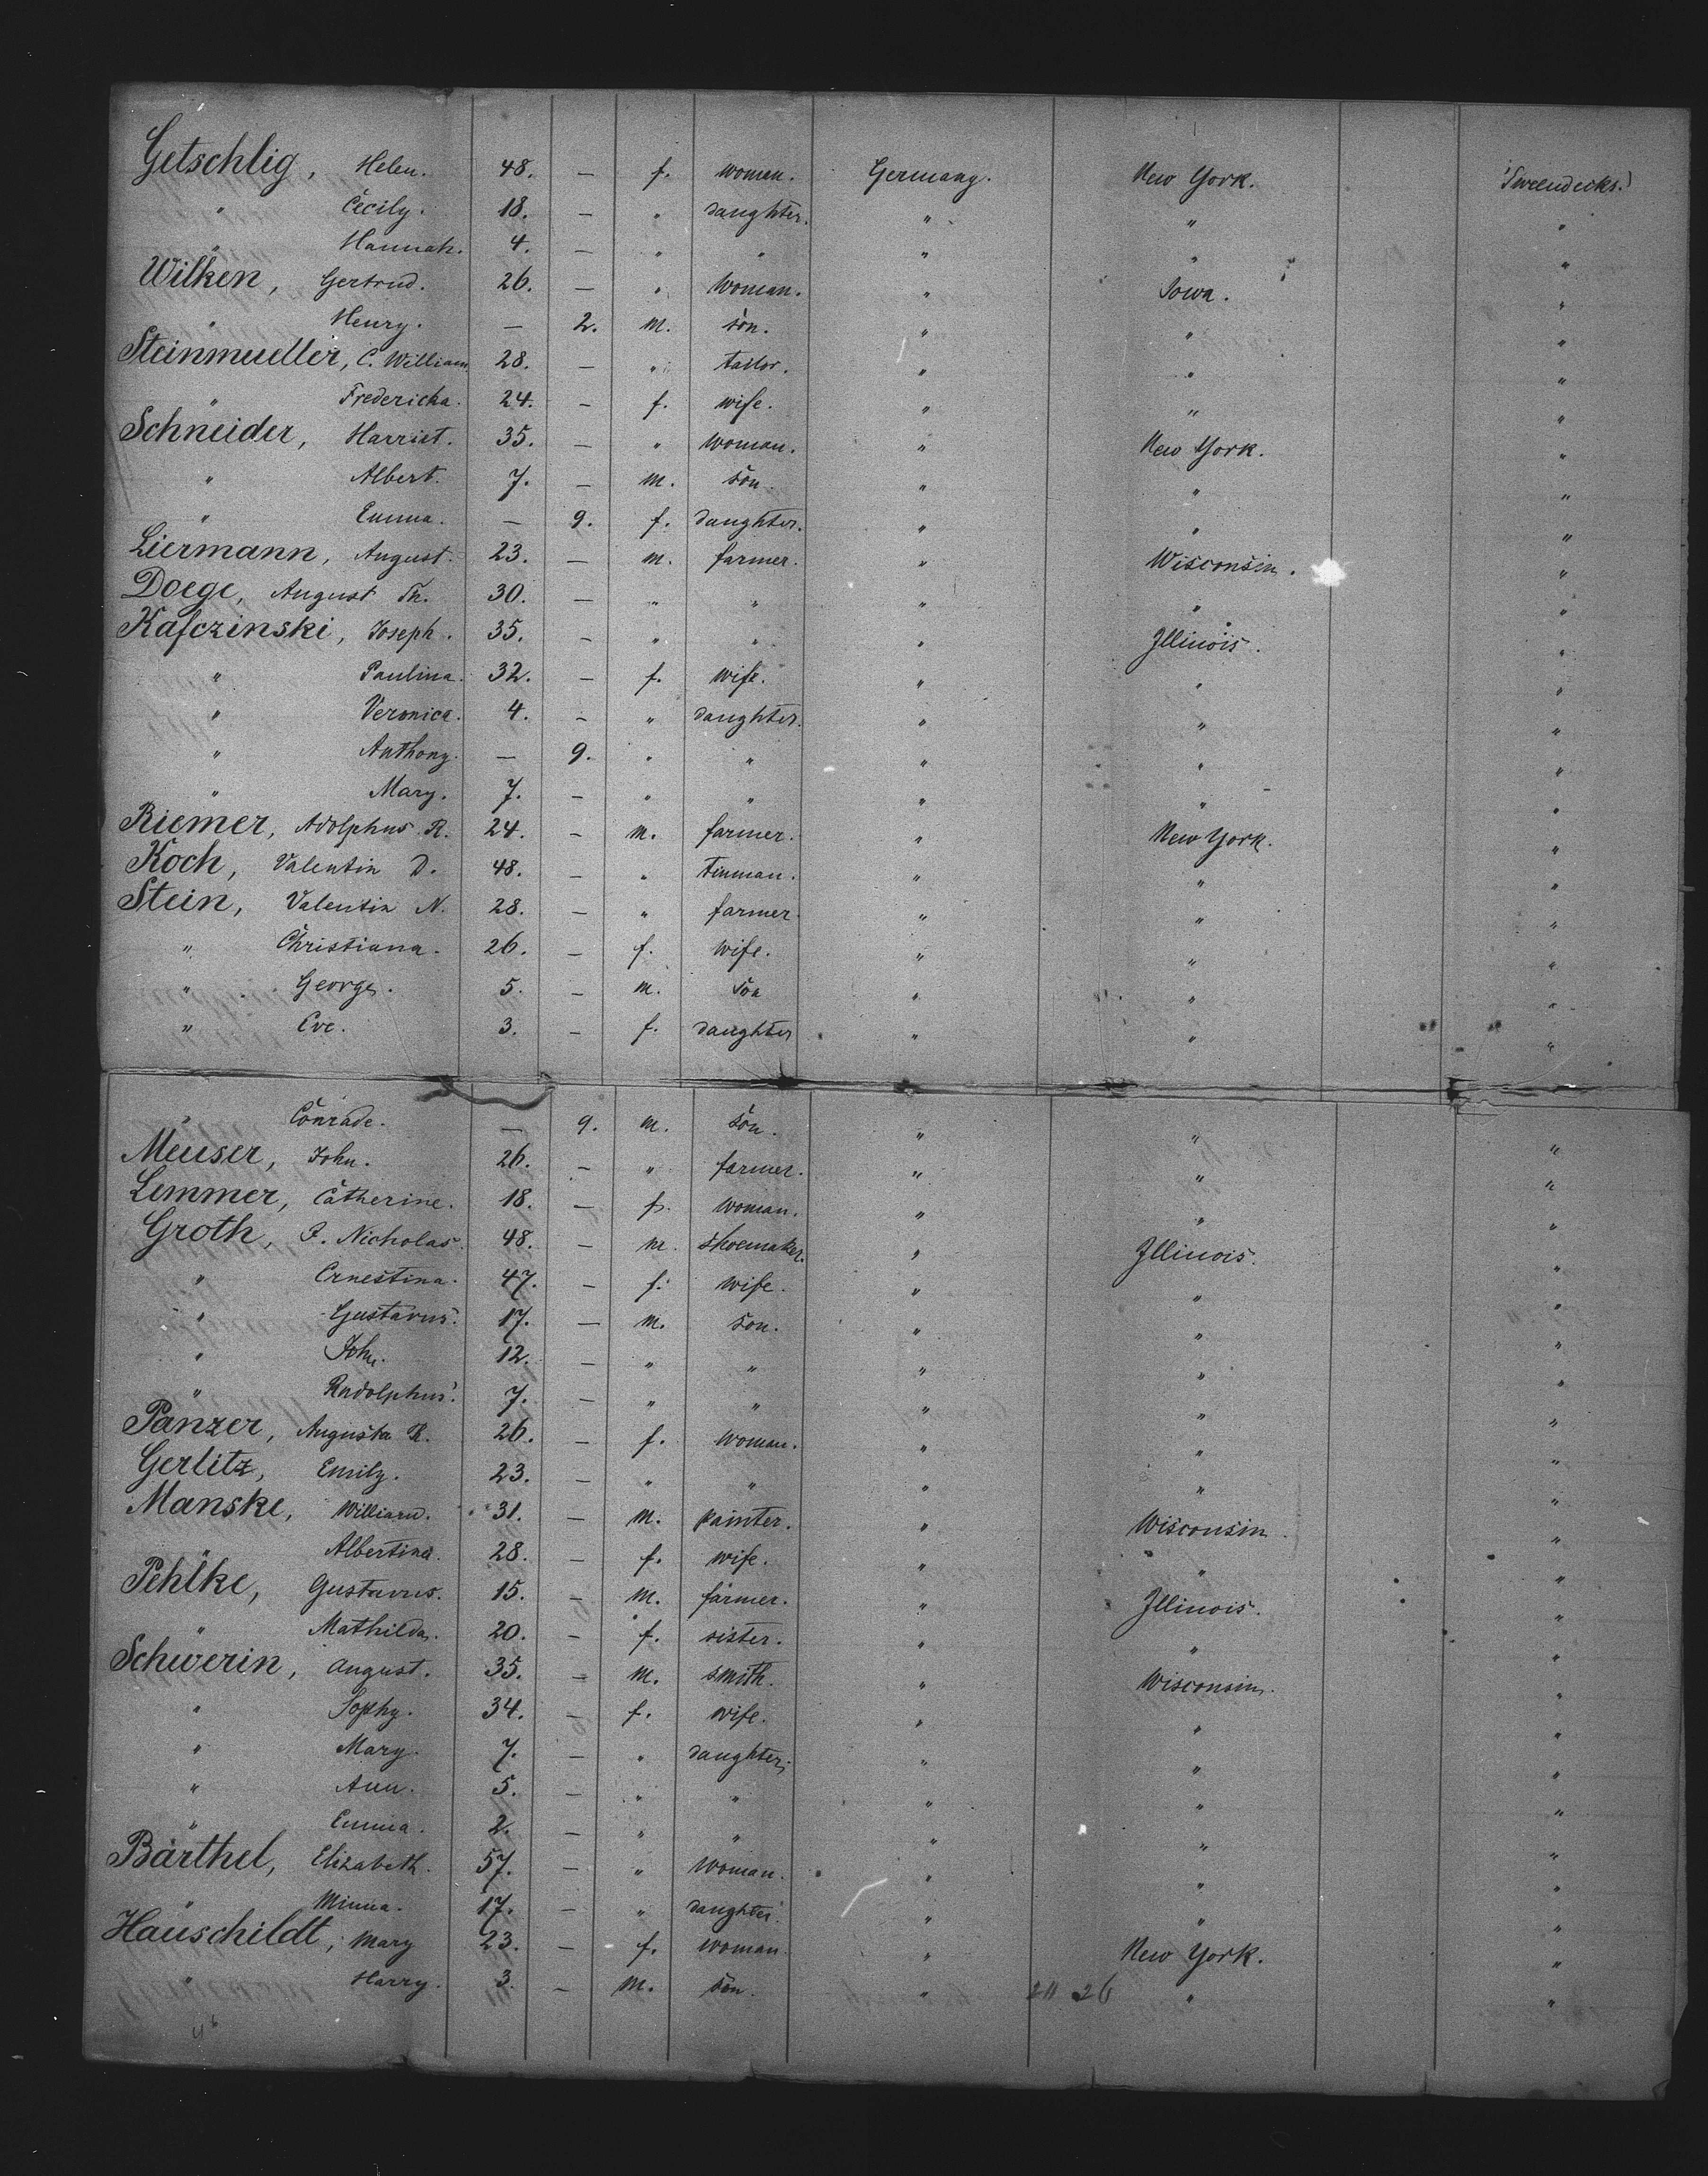 Getschlig, Helen. 48. — f. woman. Germany. New York. 'Tweendecks.
" Cecily. 18. — " daughter. " " "
" Hannah. 4. — " " " " "
Wilken, Gertrud. 26. — " woman. " Iowa. "
" Henry. — 2. m. son. " " "
Steinmueller, C. William 28. — " tailor. " " "
" Fredericka. 24. — f. wife. " " "
Schneider, Harriet. 35. — " woman. " New York. "
" Albert. 7. — m. son. " " "
" Emma. — 9. f. daughter. " " "
Liermann, August. 23. — m. farmer. " Wisconsin. "
Doege, August Th. 30. — " " " " "
Kafczinski, Joseph. 35. — " " " Illinois. "
" Paulina. 32. — f. wife. " " "
" Veronica. 4. — " daughter. " " "
" Anthony. — 9. " " " " "
" Mary. 7. — " " " " "
Riemer, Adolphus R. 24. — m. farmer. " New York. "
Koch, Valentin D. 48. — " tinman. " " "
Stein, Valentin N. 28. — " farmer. " " "
" Christiana. 26. — f. wife. " " "
" George. 5. — m. son " " "
" Eve. 3. — f. daughter " " "
" Conrade. — 9. m. son. " " "
Meuser, John. 26. — " farmer. " " "
Lemmer, Catherine. 18. — f. woman. " " "
Groth, F. Nicholas. 48. — m. shoemaker. " Illinois. "
" Ernestina. 47. — f. wife. " " "
" Gustavus. 17. — m. son. " " "
" John. 12. — " " " " "
" Rudolphus. 7. — " " " " "
Panzer, Augusta R. 26. — f. woman. " " "
Gerlitz, Emily. 23. — " " " " "
Manske, William. 31. — m. painter. " Wisconsin. "
" Albertina. 28. — f. wife. " " "
Pehlke, Gustavus. 15. — m. farmer. " Illinois. "
" Mathilda. 20. — f. sister. " " "
Schwerin, August. 35. — m. smith. " Wisconsin. "
" Sophy. 34. — f. wife. " " "
" Mary. 7. — " daughter. " " "
" Ann. 5. — " " " " "
" Emma. 2. — " " " " "
Barthel, Elizabeth. 57. — " woman. " " "
" Minna. 17. — " daughter. " " "
Hauschildt, Mary 23. — f. woman. " New York. "
" Harry. 3. — m. son. " 20 26 " "
46